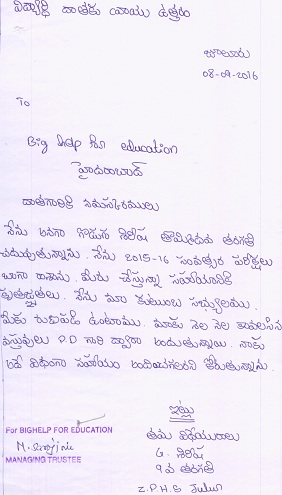 విద్యార్థి దాతకు వ్రాయు ఉత్తరం
జూలూరు
08-09-2016
To
Big help for education
హైదరాబాద్
దాతగారికి నమస్కారములు
నేను అనగా గొడుగు శిరీష తొమ్మిదవ తరగతి
చదువుతున్నాను. నేను 2015-16 సంవత్సర పరీక్షలు
బాగా రాసాను. మీరు చేస్తున్న సహాయానికి
కృతజ్ఞతలు. నేను మా కుటుంబ సభ్యులము
మీకు రుణపడి ఉంటాము. మాకు నెల నెల కావలసిన
వస్తువులు P.D గారి ద్వారా అందుతున్నాయి. నాకు
ఇదే విధంగా సహాయం అందించగలరని కోరుతున్నాను.
ఇట్లు
తమ విధేయురాలు
G. శిరీష
9వ తరగతి
Z.P.H.S Julur
For BIGHELP FOR EDUCATION
MANAGING TRUSTEE